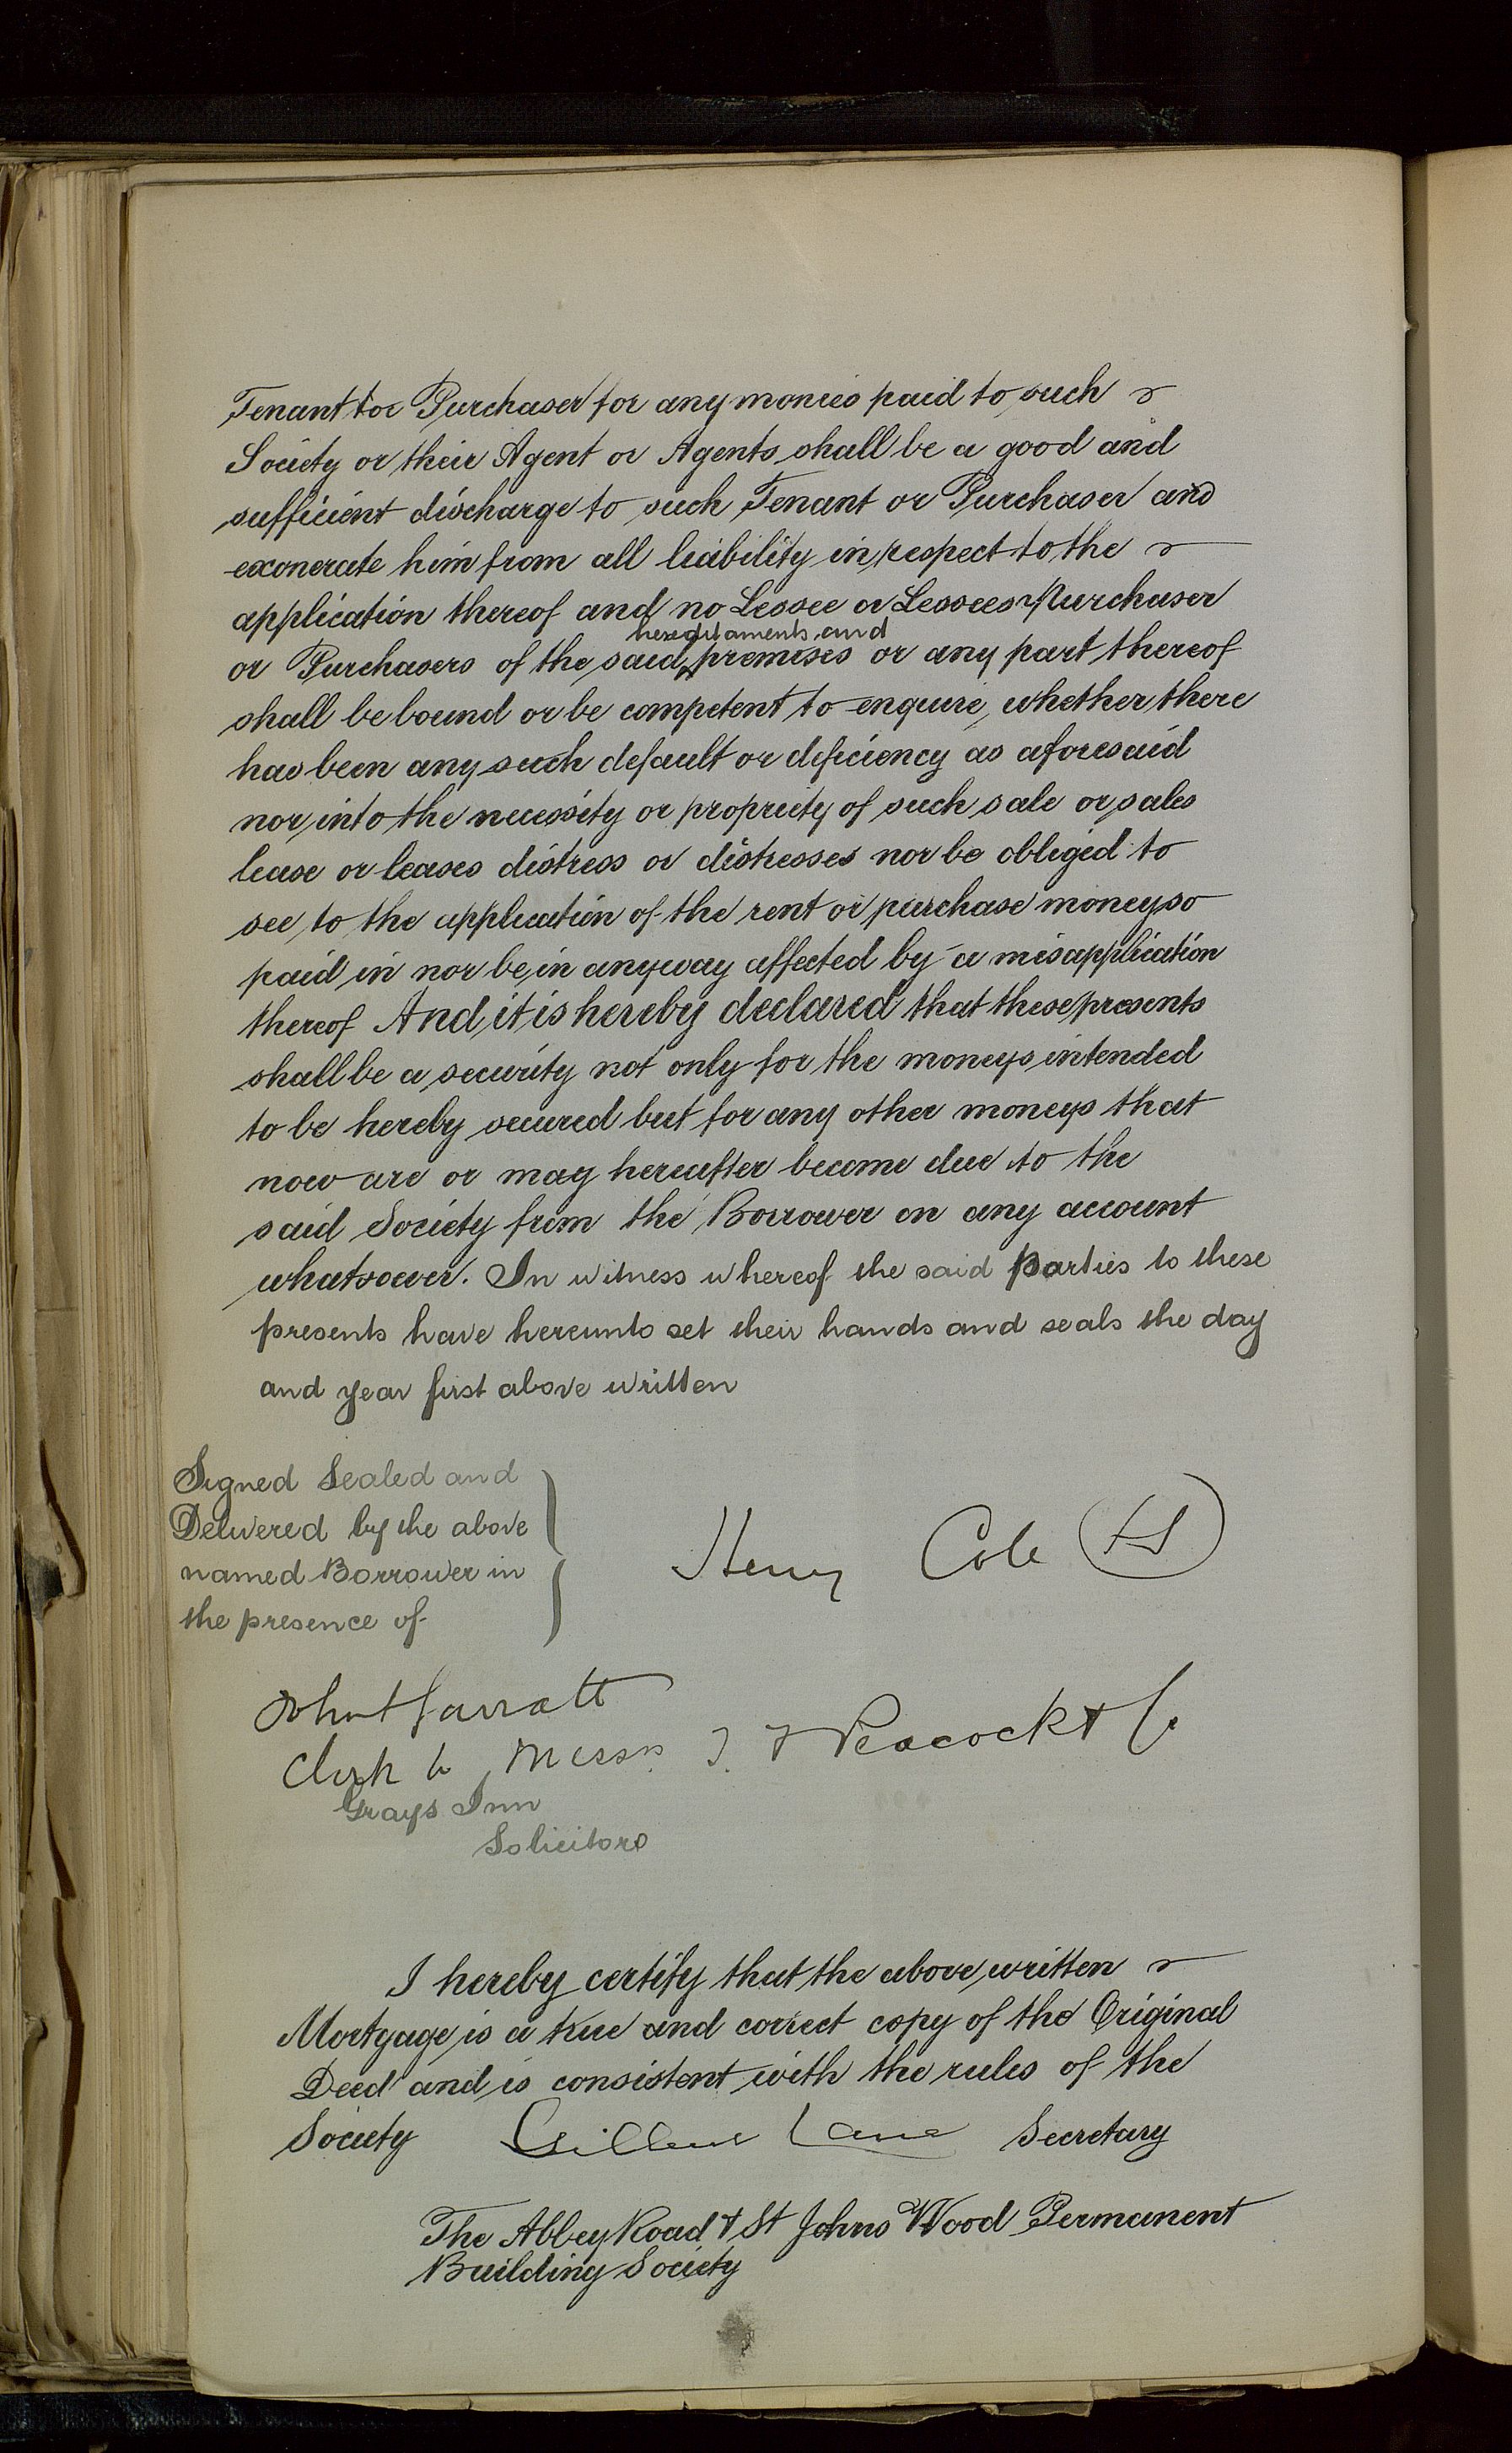 Tenant or Purchaser for any monies paid to such
Society or their Agent or Agents shall be a good and
sufficient discharge to such Tenant or Purchaser and
exonerate him from all liability in respect to the
application thereof and no Lessee or Lessees Purchaser
hereditaments and
or Purchasers of the said premises or any part thereof
shall be bound or be competent to enquire whether there
has been any such default or deficiency as aforesaid
nor into the necessity or propriety of such sale or sales
lease or leases distress or distresses nor be obliged to
see to the application of the rent or purchase money so
paid in nor be in anyway affected by a misapplication
thereof And it is hereby declared that these presents
shall be a security not only for the moneys intended
to be hereby secured but for any other moneys that
now are or may hereafter become due to the
said Society from the Borrower on any account
whatsoever. In witness whereof the said Parties to these
presents have hereunto set their hands and seals the day
and year first above written
Signed Sealed and
Delivered by the above
named Borrower in
the presence of
Henry Cole LS
John Garratt
Clerk to Messrs Peacock & Co
Grays Inn
Solicitors
I hereby certify that the above written
Mortgage is a true and correct copy of the Original
Deed and is consistent with the rules of the
Society Lane Secretary
The Abbey Road & St Johns Wood Permanent
Building Society